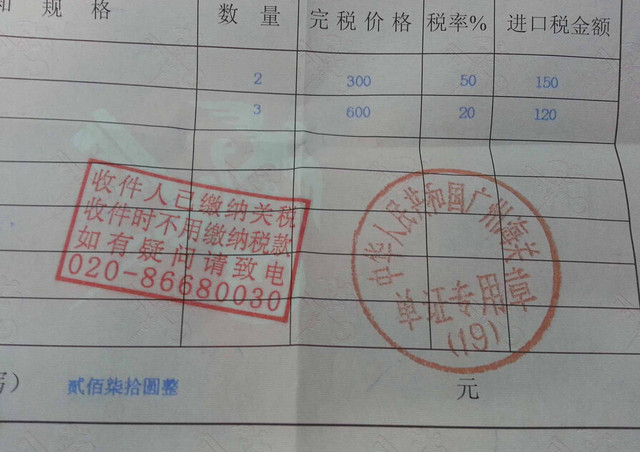 和 规 格 数 量 完税价格 税率% 进口税金额
2 300 50 150
3 600 20 120
收件人已缴纳关税
收件时不用缴纳税款
如有疑问请致电
020-86680030
中华人民共和国广州海关
验证专用章
(19)
写) 贰佰柒拾圆整 元